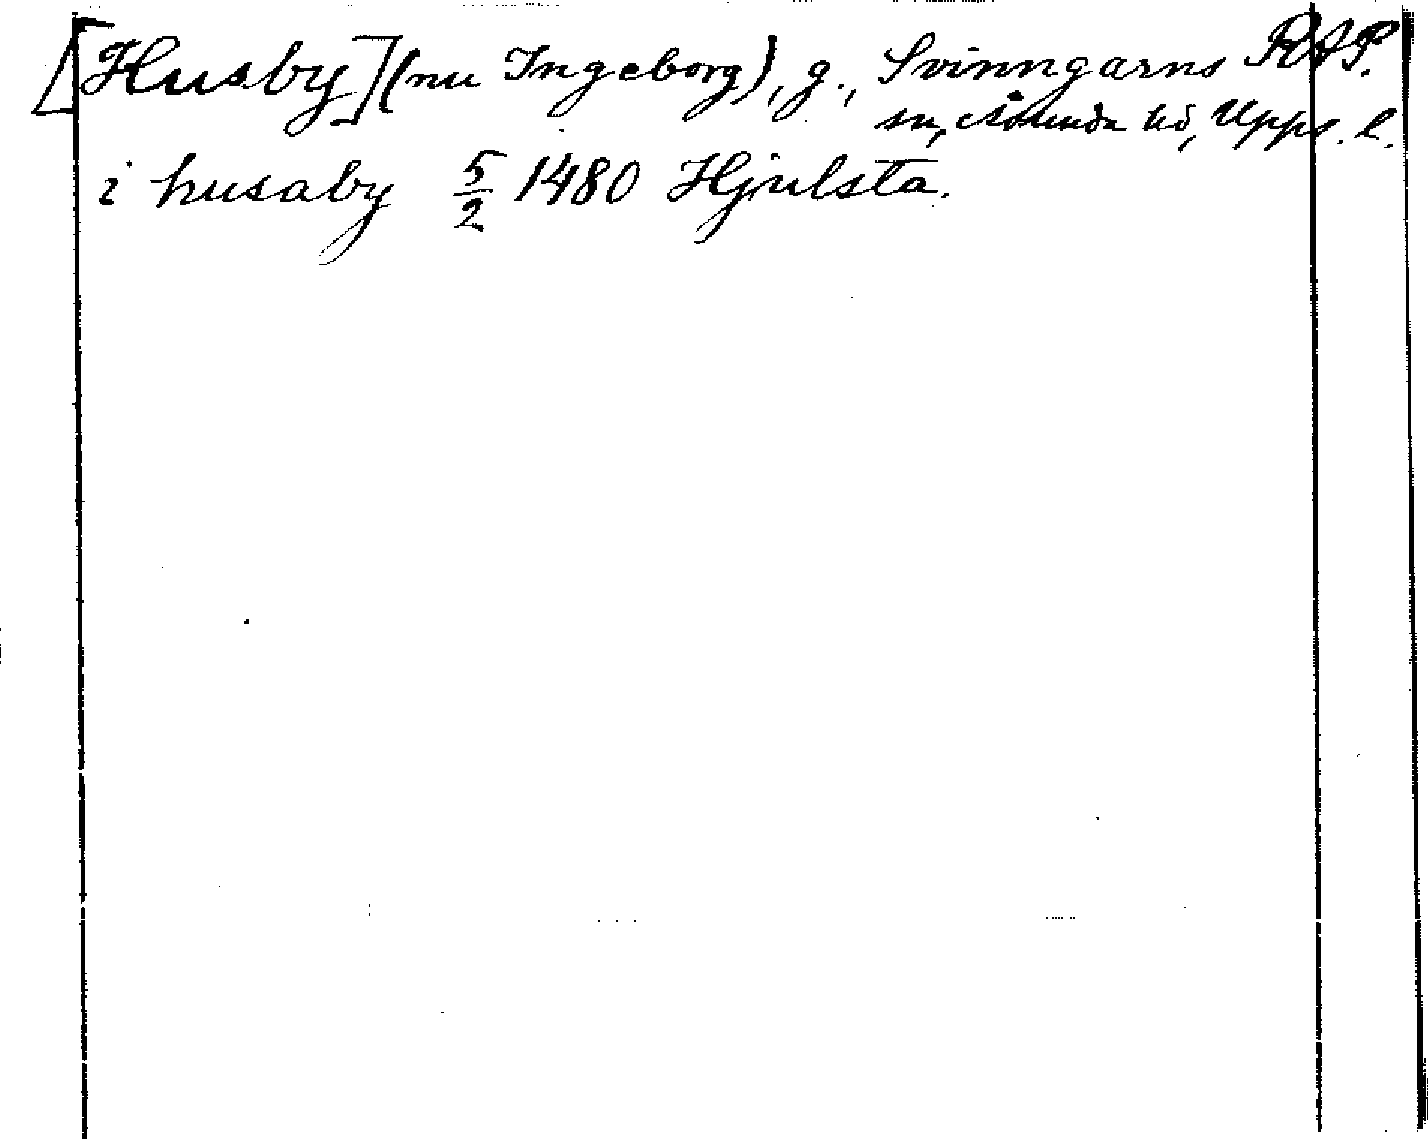 [Husby] (nu Ingeborg), g., Svinngarns RAP.
sn, Åsunda hd, Upps. l.
i husaby 5/2 1480 Hjulsta.